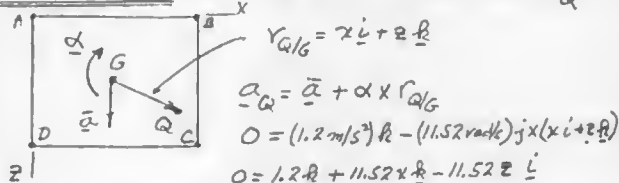 A B x
α G r_{Q/G} = x i + z k
ā Q a_Q = ā + α × r_{Q/G}
D C 0 = (1.2 m/s²) k − (11.52 rad/s) j × (x i + z k)
z 0 = 1.2 k + 11.52 x k − 11.52 z i